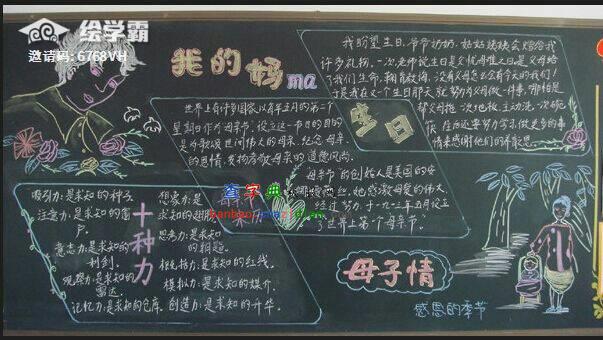 绘学霸
邀请码: 6768VH
我的妈
ma
世界上有许多国家以每年五月的第二个
星期日作为母亲节,设立这一节日的目的
是为歌颂世间伟大的母亲,纪念母亲
的恩情,发扬孝敬母亲的道德风尚。
母亲节的创始人是美国的安
娜
她感激母爱的伟大,
经过努力,于一九一三年五月设立
了世界上第一个母亲节。
生日
我盼望生日,爷爷奶奶、姑姑姨姨会给我
许多礼物。一次,老师说生日是父忧母难之日,是父母给
了我们生命,
没有父母怎么会有今天的我们!
于是我在又一个生日那天就努力为父母做一件事,那就是
帮父母拖一次地板,主动洗一次碗
筷,在后还要努力学习做更多的事
情来感谢他们的养育恩。
十种力
吸引力:是求知的种子
注意力:是求知的窗
户。
意志力:是求知的
利剑。
观察力:是求知的
雷达。
记忆力:是求知的仓库。
想象力:是
求知的翅膀。
思考力:是求知
的钥题。
是求知的红线。
模拟力:是求知的媒介。
创造力:是求知的升华。
查字典
kanbao.chazidian
母子情
感恩的季节